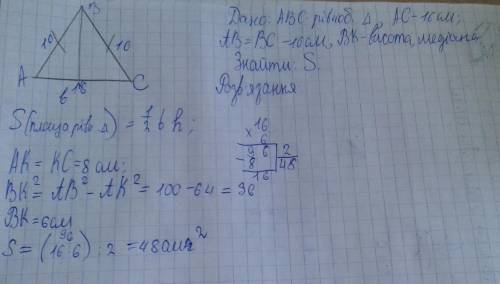 B
10 10
A 16 C
b
Дано: ABC рівноб. Δ, AC-16см;
AB=BC-10см, BK-висота, медіана
Знайти: S.
Розв'язання
S(площа рів. Δ) = 1/2 b h;
AK = KC = 8 см;
BK² = AB² - AK² = 100 - 64 = 36
BK = 6см
S = (16·6) : 2 = 48 см²
96
16
× 6
96 | 2
- 8 | 48
16